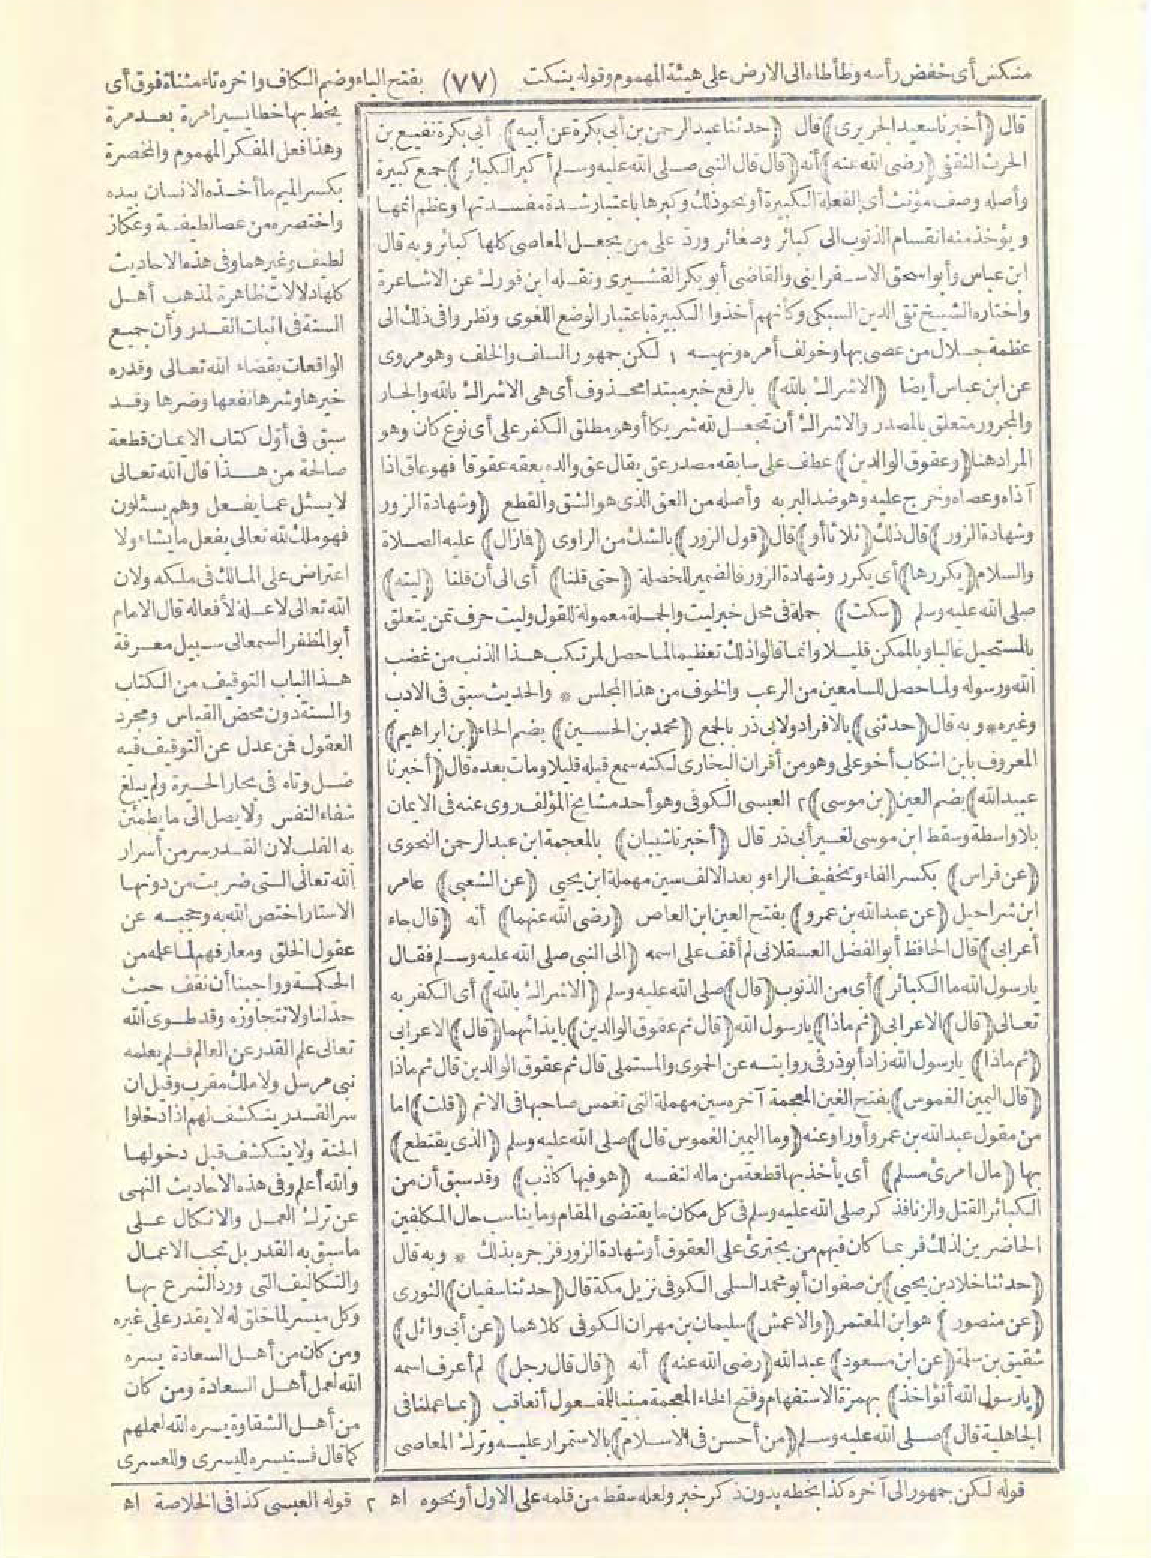 منكس أى خفض رأسه وطأطأه الى الارض على هيئة المهموم وقوله ينكت (٧٧) بفتح الياء وضم الكاف وآخره تاء مثناة فوق أى
قال (أخبرنا سعيد الجريرى) قال (حدثنا عبد الرحمن بن أبى بكرة عن أبيه) أبى بكرة نفيع بن
الحرث الثقفى (رضى الله عنه) أنه (قال قال النبى صلى الله عليه وسلم أكبر الكبائر) جمع كبيرة
وأصله وصف مؤنث أى الفعلة الكبيرة أو نحو ذلك وكبرها باعتبار شدة مفسدتها وعظم اثمها
ويؤخذ منه انقسام الذنوب الى كبائر وصغائر ورد على من يجعل المعاصى كلها كبائر وبه قال
ابن عباس وأبو اسحق الاسفراينى والقاضى أبو بكر القشيرى ونقله ابن فورك عن الاشاعرة
واختاره الشيخ تقى الدين السبكى وكأنهم أخذوا الكبيرة باعتبار الوضع اللغوى ونظروا فى ذلك الى
عظمة جلال من عصى بها وخولف أمره ونهيه ١ لكن جمهور السلف والخلف وهو مروى
عن ابن عباس أيضا (الاشراك بالله) بالرفع خبر مبتدا محذوف أى هى الاشراك بالله والجار
والمجرور متعلق بالمصدر والاشراك أن تجعل لله شريكا أو هو مطلق الكفر على أى نوع كان وهو
المراد هنا (وعقوق الوالدين) عطف على سابقه مصدر عق يقال عق والده يعقه عقوقا فهو عاق اذا
آذاه وعصاه وخرج عليه وهو ضد البر به وأصله من العق الذى هو الشق والقطع (وشهادة الزور
وشهادة الزور) قال ذلك (ثلاثا أو) قال (قول الزور) بالشك من الراوى (فازال) عليه الصلاة
والسلام (يكررها) أى يكرر وشهادة الزور فالضمير للخصلة (حتى قلنا) أى الى أن قلنا (ليته)
صلى الله عليه وسلم (سكت) جملة فى محل خبر ليت والجملة معمولة للقول وليت حرف تمن يتعلق
بالمستحيل غالبا وبالممكن قليلا وانما قالوا ذلك تعظيما لما حصل لمرتكب هذا الذنب من غضب
الله ورسوله ولما حصل للسامعين من الرعب والخوف من هذا المجلس * والحديث سبق فى الادب
وغيره * وبه قال (حدثنى) بالافراد ولابى ذر بالجمع (محمد بن الحسين) بضم الحاء (بن ابراهيم)
المعروف بابن اشكاب أخو على وهو من أقران البخارى لكنه سمع قبله قليلا ومات بعده قال (أخبرنا
عبيد الله) بضم العين (بن موسى) ٢ العبسى الكوفى وهو أحد مشايخ المؤلف روى عنه فى الايمان
بلا واسطة وسقط ابن موسى لغير أبى ذر قال (أخبرنا شيبان) بالمعجمة ابن عبد الرحمن النحوى
(عن فراس) بكسر الفاء وتخفيف الراء وبعد الالف سين مهملة ابن يحيى (عن الشعبى) عامر
ابن شراحيل (عن عبد الله بن عمرو) بفتح العين ابن العاص (رضى الله عنهما) أنه (قال جاء
أعرابى) قال الحافظ أبو الفضل العسقلانى لم أقف على اسمه (الى النبى صلى الله عليه وسلم فقال
يا رسول الله ما الكبائر) أى من الذنوب (قال) صلى الله عليه وسلم (الاشراك بالله) أى الكفر به
تعالى (قال) الاعرابى (ثم ماذا) يا رسول الله (قال ثم عقوق الوالدين) بايذائهما (قال) الاعرابى
(ثم ماذا) يا رسول الله زاد أبو ذر فى روايته عن الحموى والمستملى قال ثم عقوق الوالدين قال ثم ماذا
(قال اليمين الغموس) بفتح الغين المعجمة آخره سين مهملة التى تغمس صاحبها فى الاثم (قلت) اما
من مقول عبد الله بن عمرو أو راو عنه (وما اليمين الغموس قال) صلى الله عليه وسلم (الذى يقتطع)
بها (مال امرئ مسلم) أى يأخذ بها قطعة من ماله لنفسه (هو فيها كاذب) وقد سبق أن من
الكبائر القتل والزنا فذكر صلى الله عليه وسلم فى كل مكان ما يقتضى المقام وما يناسب حال المكلفين
الحاضرين لذلك فربما كان فيهم من يجترئ على العقوق أو شهادة الزور فزجره بذلك * وبه قال
(حدثنا خلاد بن يحيى) بن صفوان أبو محمد السلمى الكوفى نزيل مكة قال (حدثنا سفيان) الثورى
(عن منصور) هو ابن المعتمر (والاعمش) سليمان بن مهران الكوفى كلاهما (عن أبى وائل)
شقيق بن سلمة (عن ابن مسعود) عبد الله (رضى الله عنه) أنه (قال قال رجل) لم أعرف اسمه
(يا رسول الله أنؤاخذ) بهمزة الاستفهام وفتح الخاء المعجمة مبنيا للمفعول أنعاقب (بما عملنا فى
الجاهلية قال) صلى الله عليه وسلم (من أحسن فى الاسلام) بالاستمرار عليه وترك المعاصى
يخط بها خطا يسيرا مرة بعد مرة
وهذا فعل المفكر المهموم والمخصرة
بكسر الميم ما أخذه الانسان بيده
واختصره من عصا لطيفة وعكاز
لطيف وغيرهما وفى هذه الاحاديث
كلها دلالات ظاهرة لمذهب أهل
السنة فى اثبات القدر وأن جميع
الواقعات بقضاء الله تعالى وقدره
خيرها وشرها نفعها وضرها وقد
سبق فى أول كتاب الايمان قطعة
صالحة من هذا قال الله تعالى
لا يسئل عما يفعل وهم يسئلون
فهو ملك لله تعالى يفعل ما يشاء ولا
اعتراض على المالك فى ملكه ولان
الله تعالى لا علة لأفعاله قال الامام
أبو المظفر السمعانى سبيل معرفة
هذا الباب التوقيف من الكتاب
والسنة دون محض القياس ومجرد
العقول فمن عدل عن التوقيف فيه
ضل وتاه فى بحار الحيرة ولم يبلغ
شفاء النفس ولا يصل الى ما يطمئن
به القلب لان القدر سر من أسرار
الله تعالى التى ضربت من دونها
الاستار اختص الله به وحجبه عن
عقول الخلق ومعارفهم لما علمه من
الحكمة وواجبنا أن نقف حيث
حد لنا ولا نتجاوزه وقد طوى الله
تعالى علم القدر عن العالم فلم يعلمه
نبى مرسل ولا ملك مقرب وقيل ان
سر القدر ينكشف لهم اذا دخلوا
الجنة ولا ينكشف قبل دخولها
والله أعلم وفى هذه الاحاديث النهى
عن ترك العمل والاتكال على
ما سبق به القدر بل تجب الاعمال
والتكاليف التى ورد الشرع بها
وكل ميسر لما خلق له لا يقدر على غيره
ومن كان من أهل السعادة يسره
الله لعمل أهل السعادة ومن كان
من أهل الشقاوة يسره الله لعملهم
كما قال فسنيسره لليسرى وللعسرى
قوله لكن جمهور الى آخره كذا بخطه بدون ذكر خبر ولعله سقط من قلمه على الاول أو نحوه اه ٢ قوله العبسى كذا فى الخلاصة اه